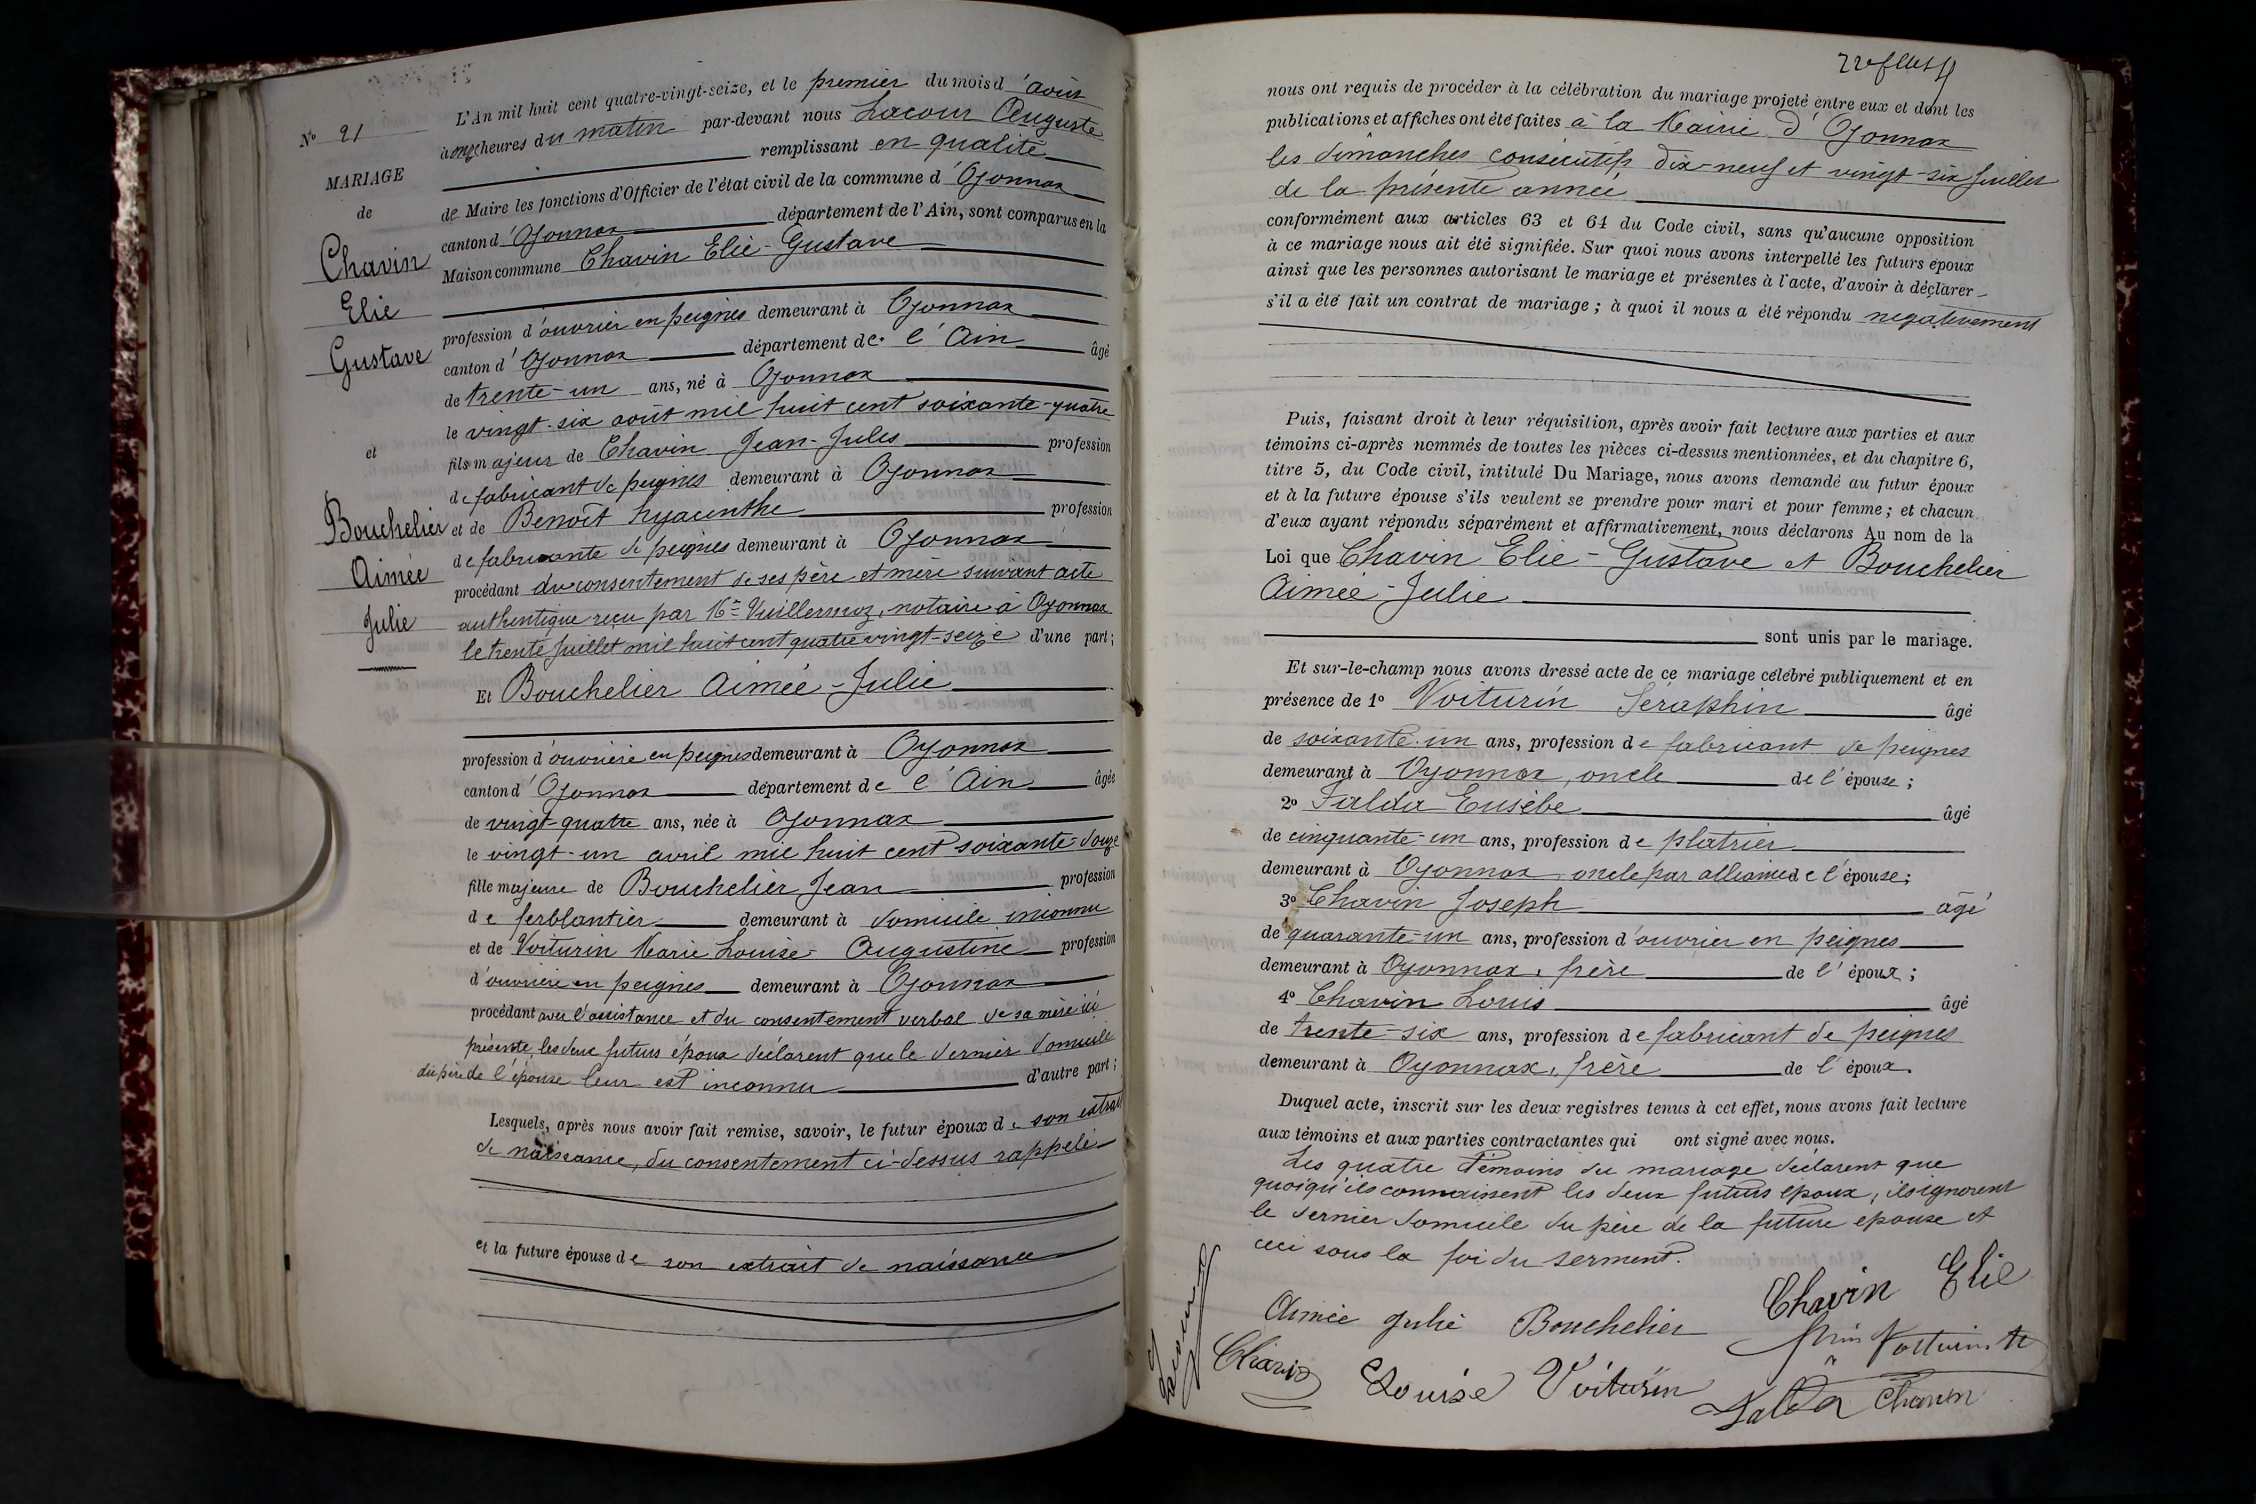 N° 21
MARIAGE
de
Chavin
Elie
Gustave
et
Bouchelier
Aimée
Julie
L'An mil huit cent quatre-vingt-seize, et le premier du mois d'août
à onze heures du matin par-devant nous Lacour Auguste
remplissant en qualité
de Maire les fonctions d'Officier de l'état civil de la commune d'Oyonnax
canton d'Oyonnax département de l'Ain, sont comparus en la
Maison commune Chavin Elie-Gustave
profession d'ouvrier en peignes demeurant à Oyonnax
canton d'Oyonnax département de l'Ain âgé
de trente-un ans, né à Oyonnax
le vingt-six août mil huit cent soixante-quatre
fils majeur de Chavin Jean-Jules profession
de fabricant de peignes demeurant à Oyonnax
et de Benoît hyacinthe profession
de fabricante de peignes demeurant à Oyonnax
procédant du consentement de ses père et mère suivant acte
authentique reçu par Me Vuillermoz, notaire à Oyonnax
le trente juillet mil huit cent quatre vingt-seize d'une part;
Et Bouchelier Aimée-Julie
profession d'ouvrière en peignes demeurant à Oyonnax
canton d'Oyonnax département de l'Ain âgée
de vingt-quatre ans, née à Oyonnax
le vingt-un avril mil huit cent soixante-douze
fille majeure de Bouchelier Jean profession
de ferblantier demeurant à domicile inconnu
et de Voiturin Marie Louise-Augustine profession
d'ouvrière en peignes demeurant à Oyonnax
procédant avec l'assistance et du consentement verbal de sa mère ici
présente, les deux futurs époux déclarent que le dernier domicile
du père de l'épouse leur est inconnu d'autre part;
Lesquels, après nous avoir fait remise, savoir, le futur époux de son extrait
de naissance, du consentement ci-dessus rappelé
et la future épouse de son extrait de naissance
nous ont requis de procéder à la célébration du mariage projeté entre eux et dont les
publications et affiches ont été faites à la Mairie d'Oyonnax
les dimanches consécutifs dix-neuf et vingt-six juillet
de la présente année
conformément aux articles 63 et 64 du Code civil, sans qu'aucune opposition
à ce mariage nous ait été signifiée. Sur quoi nous avons interpellé les futurs époux
ainsi que les personnes autorisant le mariage et présentes à l'acte, d'avoir à déclarer
s'il a été fait un contrat de mariage; à quoi il nous a été répondu negativement
Puis, faisant droit à leur réquisition, après avoir fait lecture aux parties et aux
témoins ci-après nommés de toutes les pièces ci-dessus mentionnées, et du chapitre 6,
titre 5, du Code civil, intitulé Du Mariage, nous avons demandé au futur époux
et à la future épouse s'ils veulent se prendre pour mari et pour femme; et chacun
d'eux ayant répondu séparément et affirmativement, nous déclarons Au nom de la
Loi que Chavin Elie-Gustave et Bouchelier
Aimée-Julie
sont unis par le mariage.
Et sur-le-champ nous avons dressé acte de ce mariage célébré publiquement et en
présence de 1° Voiturin Séraphin âgé
de soixante-un ans, profession de fabricant de peignes
demeurant à Oyonnax, oncle de l'épouse;
2° Jalda Eusèbe âgé
de cinquante-un ans, profession de platrier
demeurant à Oyonnax, oncle par alliance de l'épouse;
3° Chavin Joseph âgé
de quarante-un ans, profession d'ouvrier en peignes
demeurant à Oyonnax, frère de l'époux;
4° Chavin Louis âgé
de trente-six ans, profession de fabricant de peignes
demeurant à Oyonnax, frère de l'époux.
Duquel acte, inscrit sur les deux registres tenus à cet effet, nous avons fait lecture
aux témoins et aux parties contractantes qui ont signé avec nous.
Les quatre témoins du mariage déclarent que
quoiqu'ils connaissent les deux futurs époux, ils ignorent
le dernier domicile du père de la future epouse et
ceci sous la foi du serment.
Chavin Elie
Aimée Julie Bouchelier
Chavin Louise Voiturin
Jalda Chavin